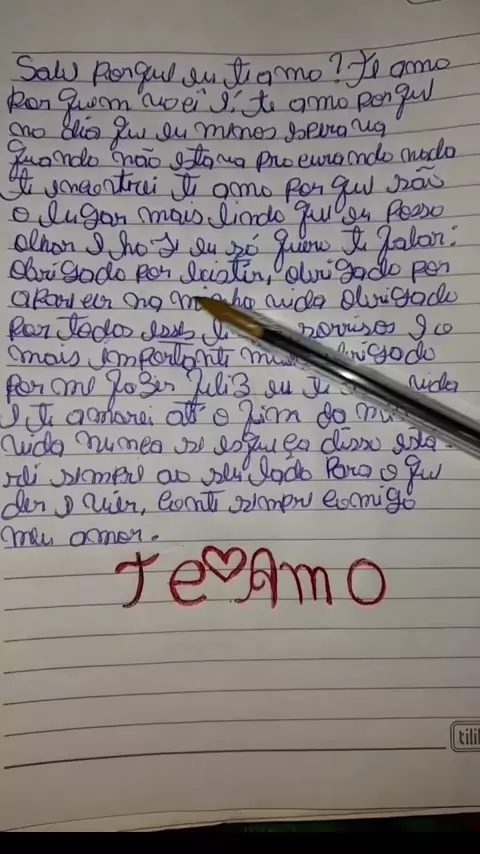 Sabe porque eu te amo? Te amo
por quem você é, te amo porque
no dia que eu menos esperava
quando não estava procurando nada
te encontrei te amo por que são
o lugar mais lindo que eu posso
olhar e hoje eu só quero te falar:
obrigado por existir, obrigado por
aparecer na minha vida obrigado
por todos esses sorrisos e o
mais importante obrigado
por me fazer feliz eu te vida
e te amarei até o fim da
vida nunca se esqueça disso esta
rei sempre ao seu lado para o que
der e vier, conte sempre comigo
meu amor.
Te♡Amo
tili